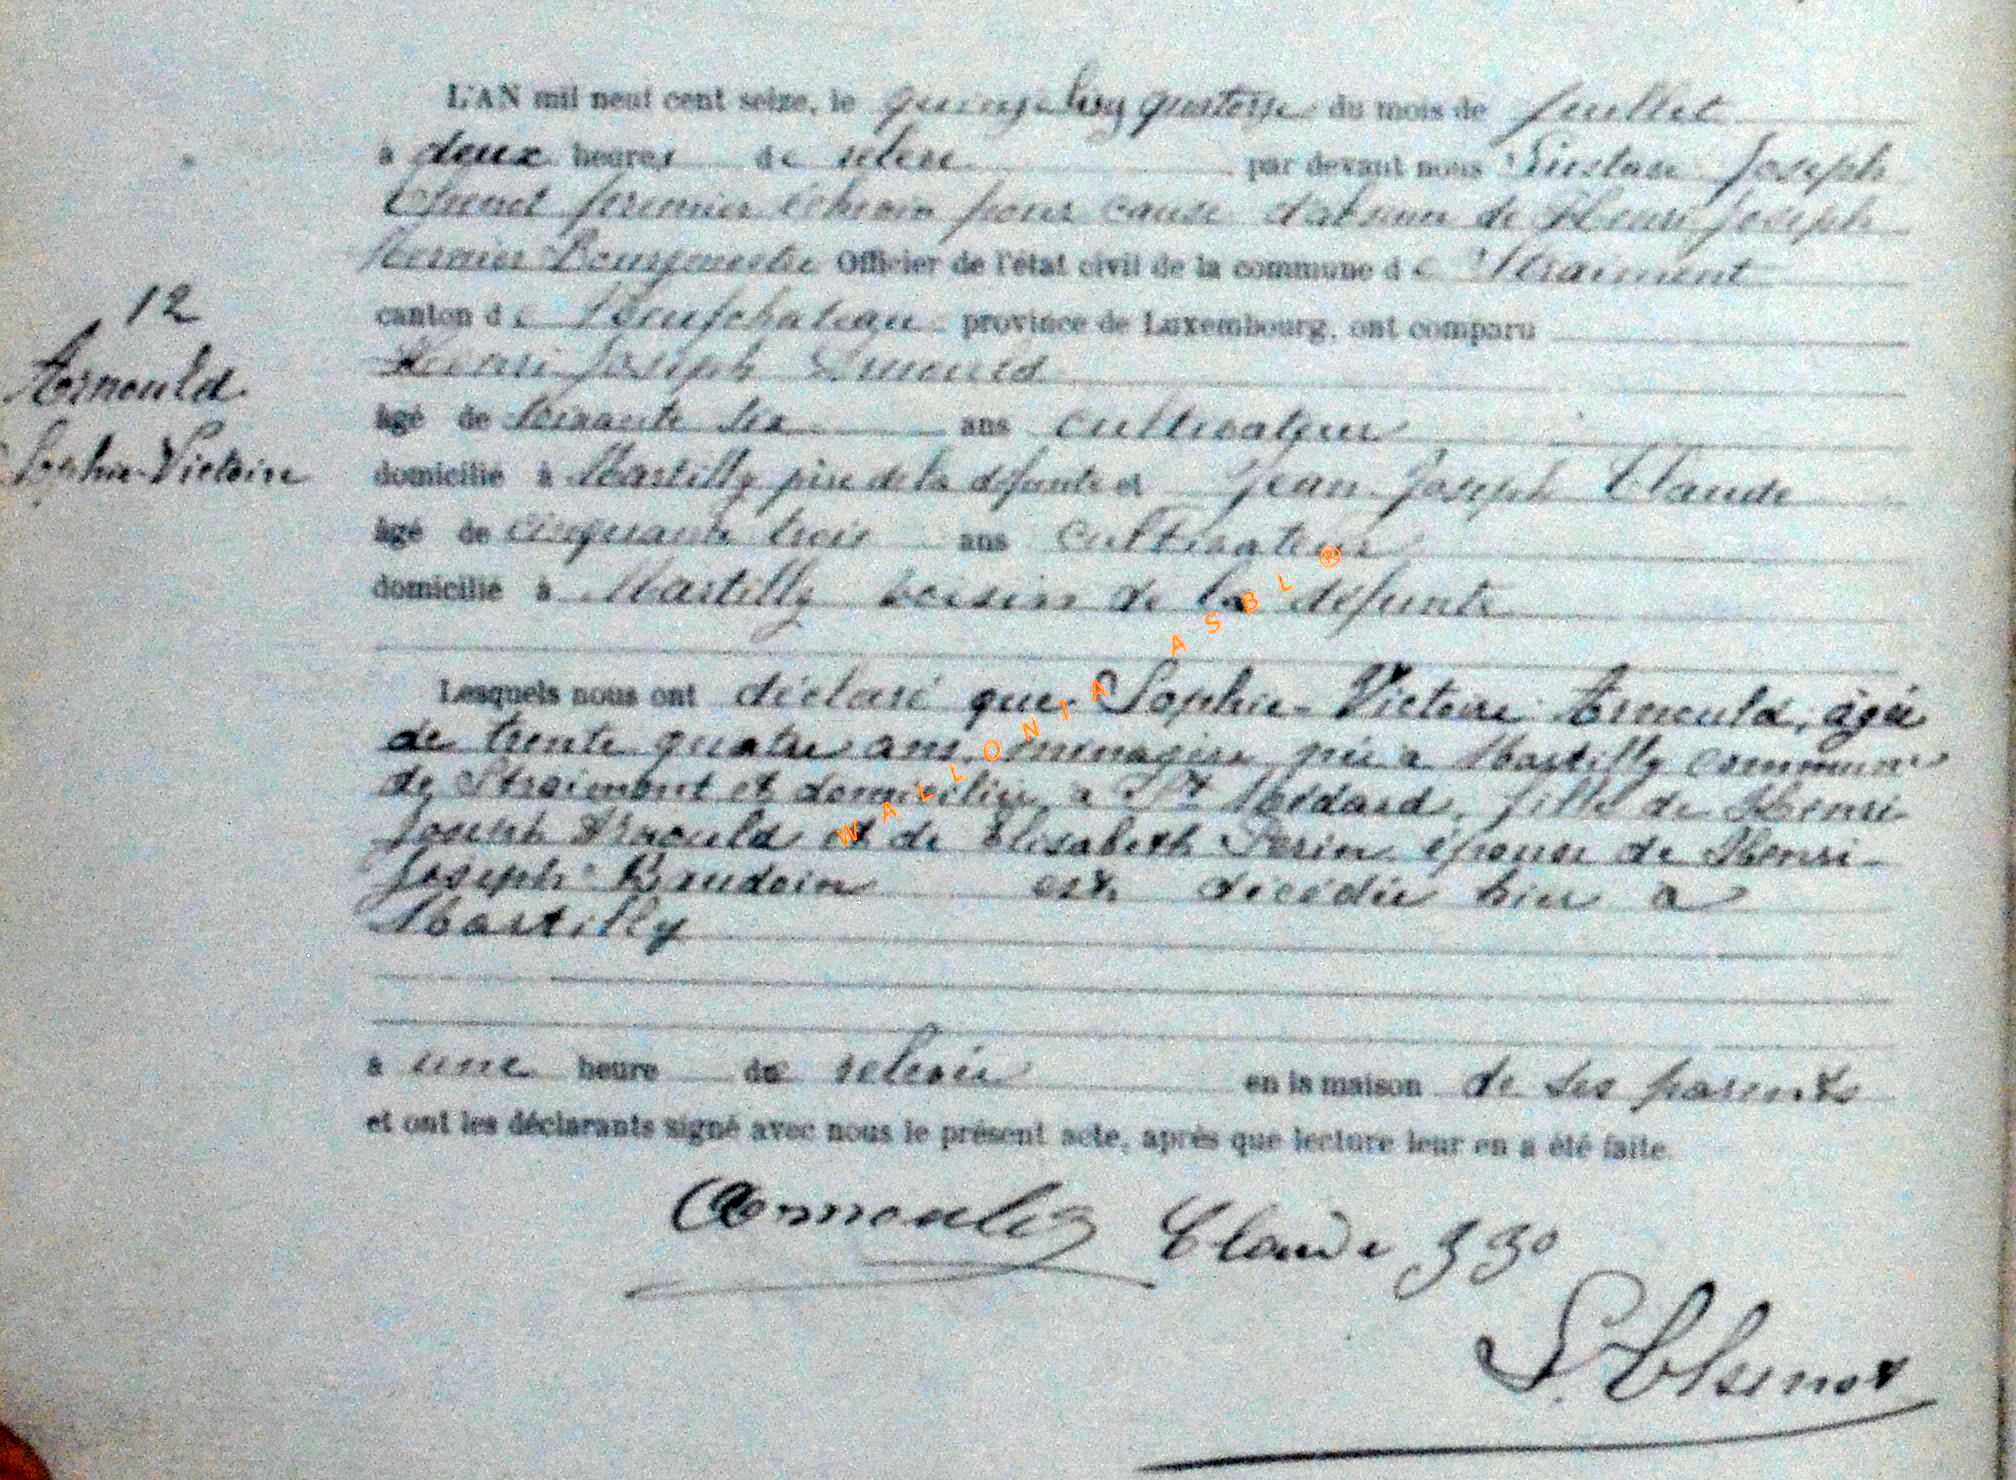 L'AN mil neuf cent seize, le quinze lisez quatorze du mois de Juillet
à deux heures de relevée par devant nous Gustave Joseph
premier échevin pour cause d'absence de Henri Joseph
Bourgmestre Officier de l'état civil de la commune de Straimont
canton de Neufchateau province de Luxembourg, ont comparu
12
Henri Joseph Arnould
Arnould
âgé de soixante six ans cultivateur
Sophie-Victoire
domicilié à Martilly père de la défunte et Jean Joseph Claude
âgé de cinquante trois ans cultivateur
domicilié à Martilly voisin de la défunte
Lesquels nous ont déclaré que Sophie-Victoire Arnould, âgée
de trente quatre ans, ménagère née à Martilly commune
de Straimont et domiciliée à St Médard, fille de Henri
Joseph Arnould et de Elisabeth Perin, épouse de Henri-
Joseph Baudoin est décédée hier à
Martilly
à une heure de relevée en la maison de ses parents
et ont les déclarants signé avec nous le présent acte, après que lecture leur en a été faite.
Arnould Claude JJo
WALLONIA ASBL ®